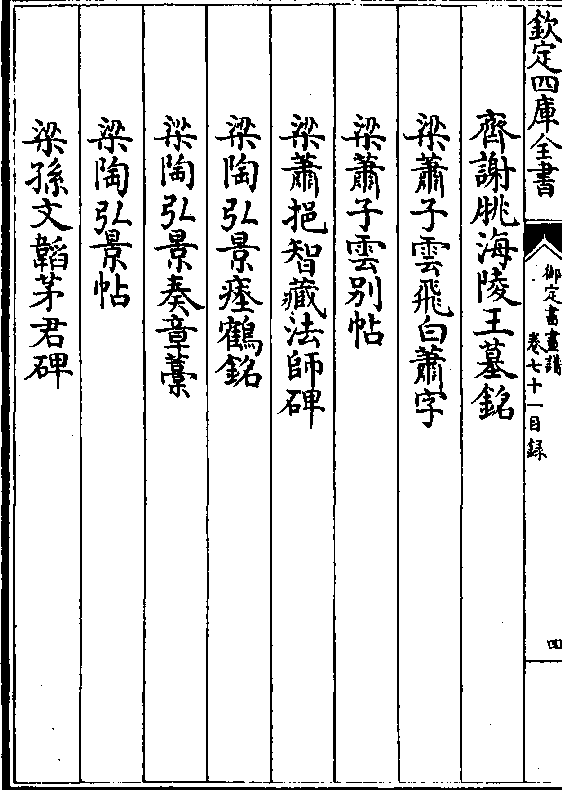 欽定四庫全書
御定書畫譜
卷七十一目錄
四
齊謝朓海陵王墓銘
梁蕭子雲飛白蕭字
梁蕭子雲别帖
梁蕭挹智藏法師碑
梁陶弘景瘞鶴銘
梁陶弘景奏章藁
梁陶弘景帖
梁孫文韜茅君碑